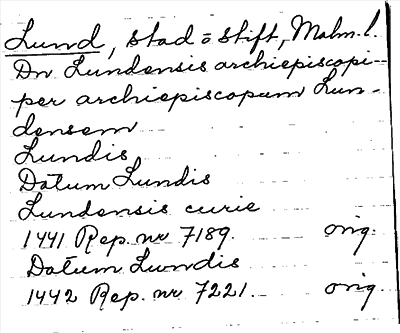 Lund, stad o stift, Malm. l.
Dn. Lundensis archiepiscopi-
per archiepiscopum Lun-
densem
Lundis
Datum Lundis
Lundensis curie
1441 Rep. nr 7189. orig.
Datum Lundis
1442 Rep. nr 7221. orig.